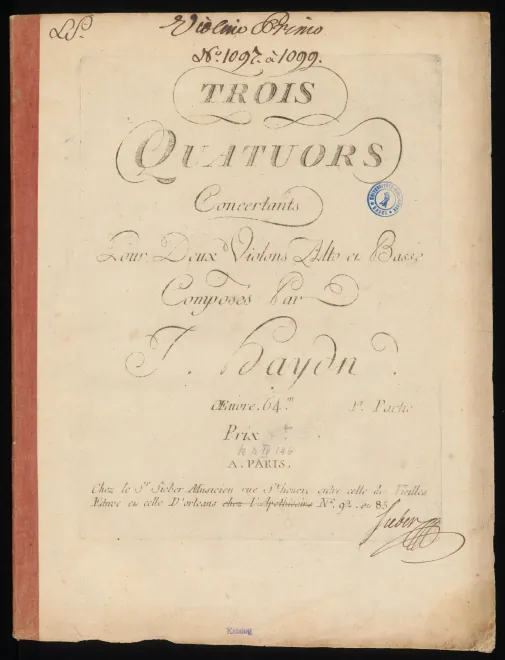 LS.
Violino Primo
No. 1097. à 1099.
TROIS
QUATUORS
Concertants
Pour Deux Violons Alto et Basse
Composés Par
J. Haydn.
Œuvre. 64.m 1.e Partie
Prix
A. PARIS.
Chez le Sr. Sieber Musicien rue St. honoré entre celle des Vieilles
Etuve et celle D'orleans chez l'Apothicaire No. 92. ou 85
Sieber
Katalog